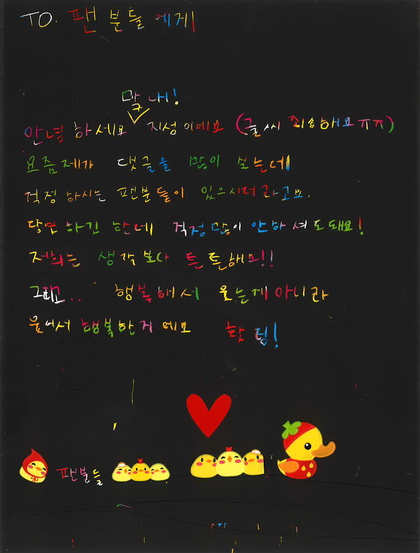 TO.팬 분들 에게
막내!
안녕 하세요 지성이에요 (글씨 죄송해요 ㅠㅠ)
요즘 제가 댓글을 많이 보는데
걱정 하시는 팬분들이 있으시더라고요.
당연 하긴 한데 걱정 많이 안하셔도 돼요!
저희는 생각보다 튼튼해요!!
그리고.. 행복해서 웃는게 아니라
웃어서 행복한거 예요 핫팅!
팬분들